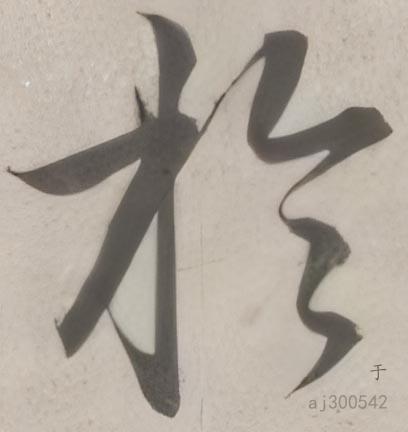 於
于
aj300542